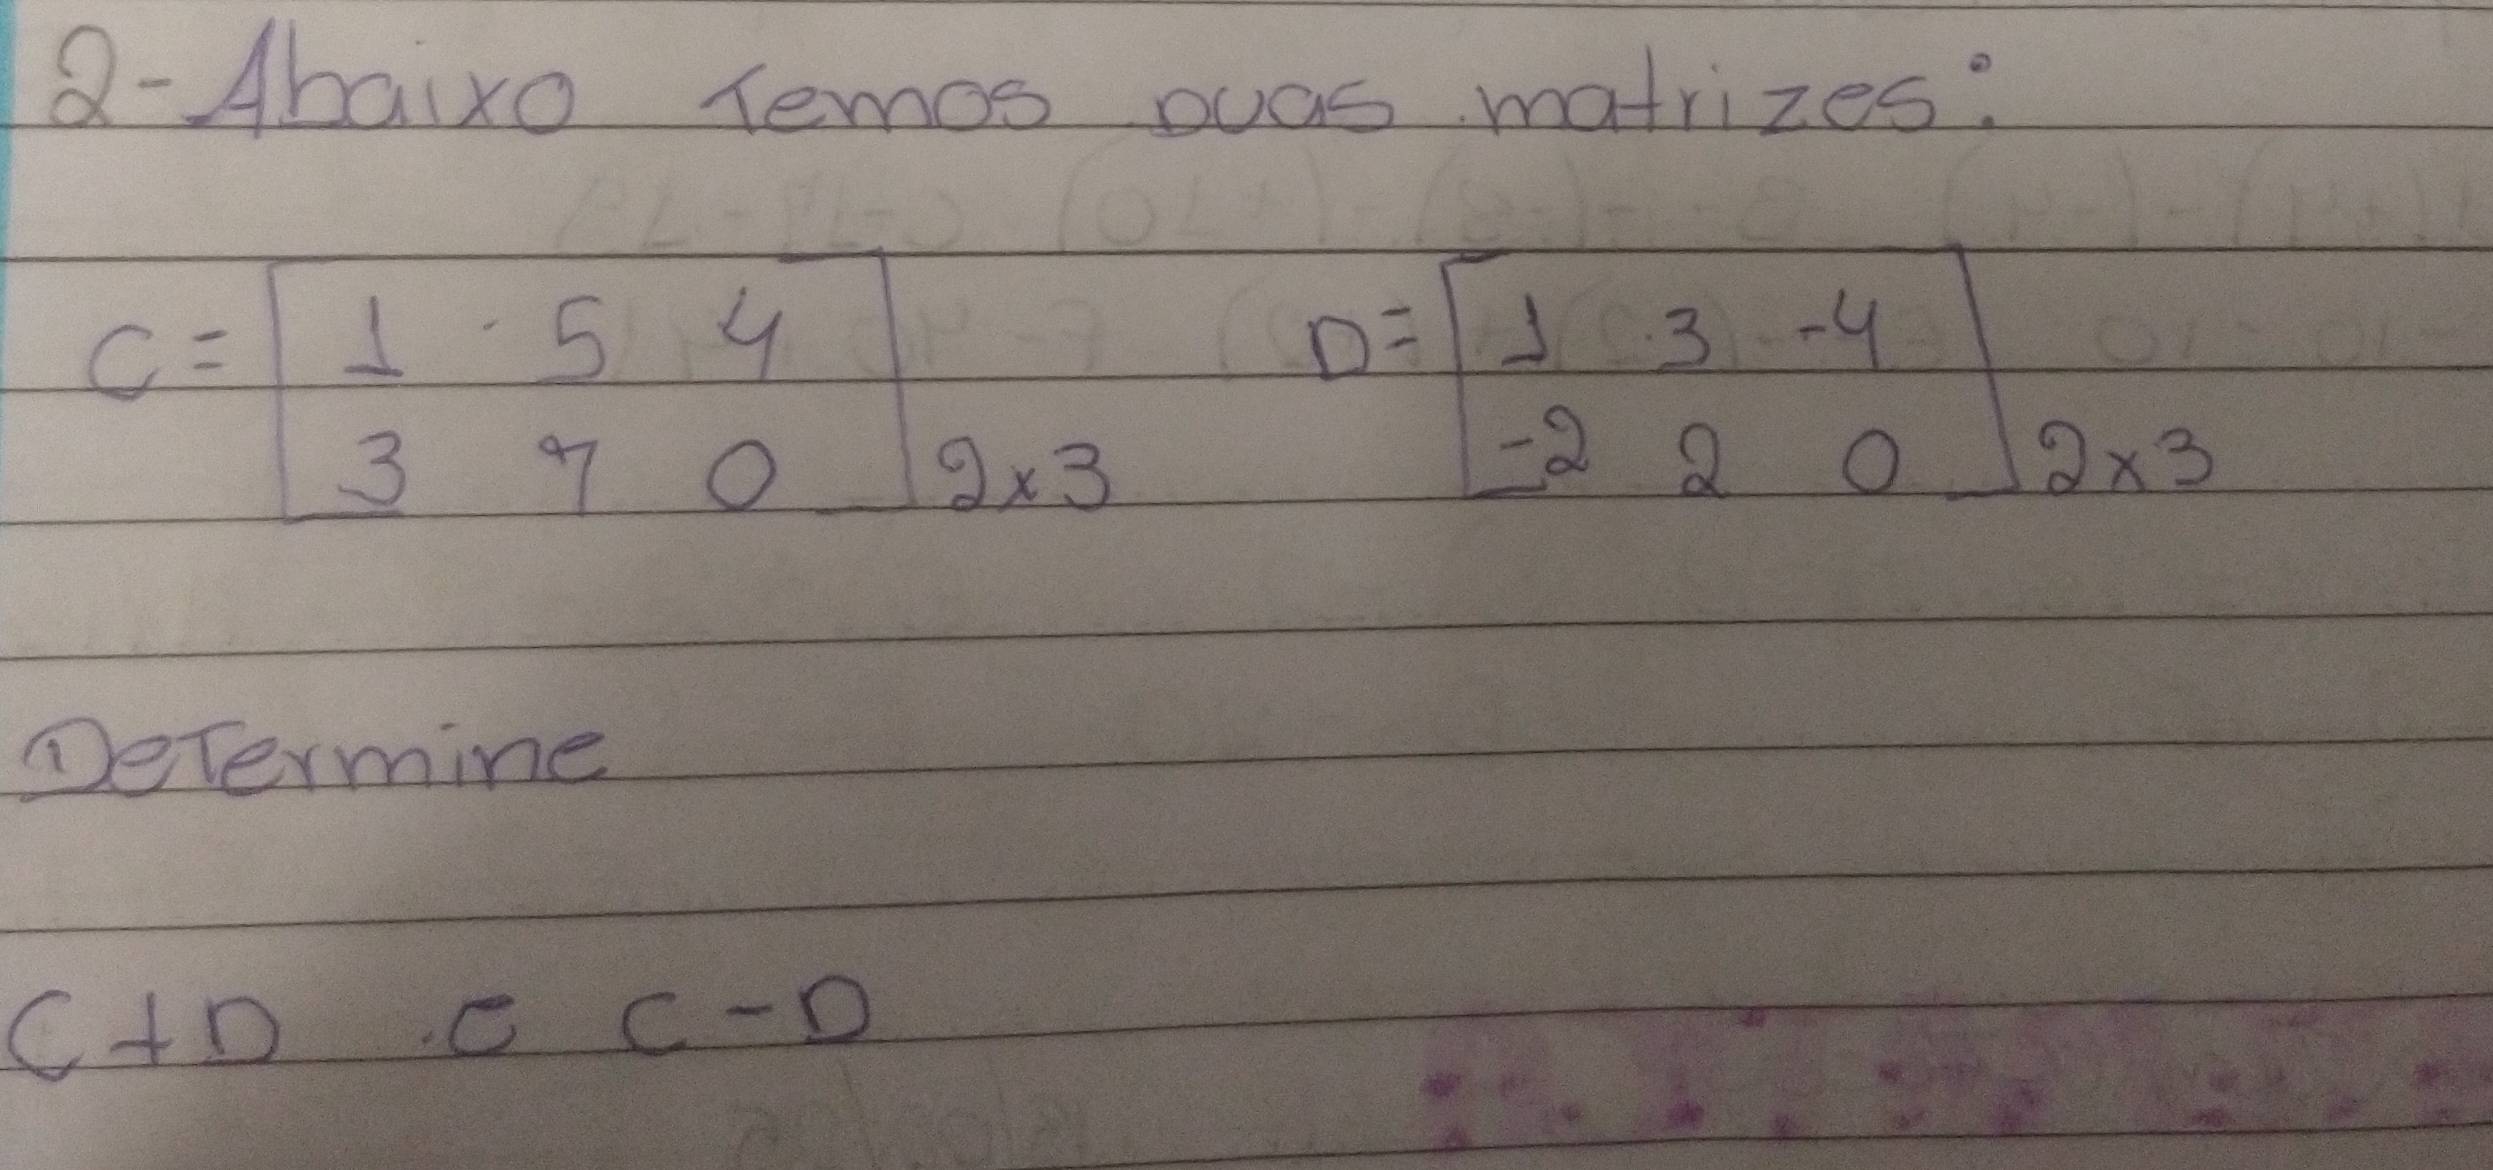 2-Abaixo Temos Duas matrizes:
C= [ 1 5 4 D= [ 1 3 -4
3 7 0 ] 2x3 -2 2 0 ] 2x3
Determine
C+D e C-D